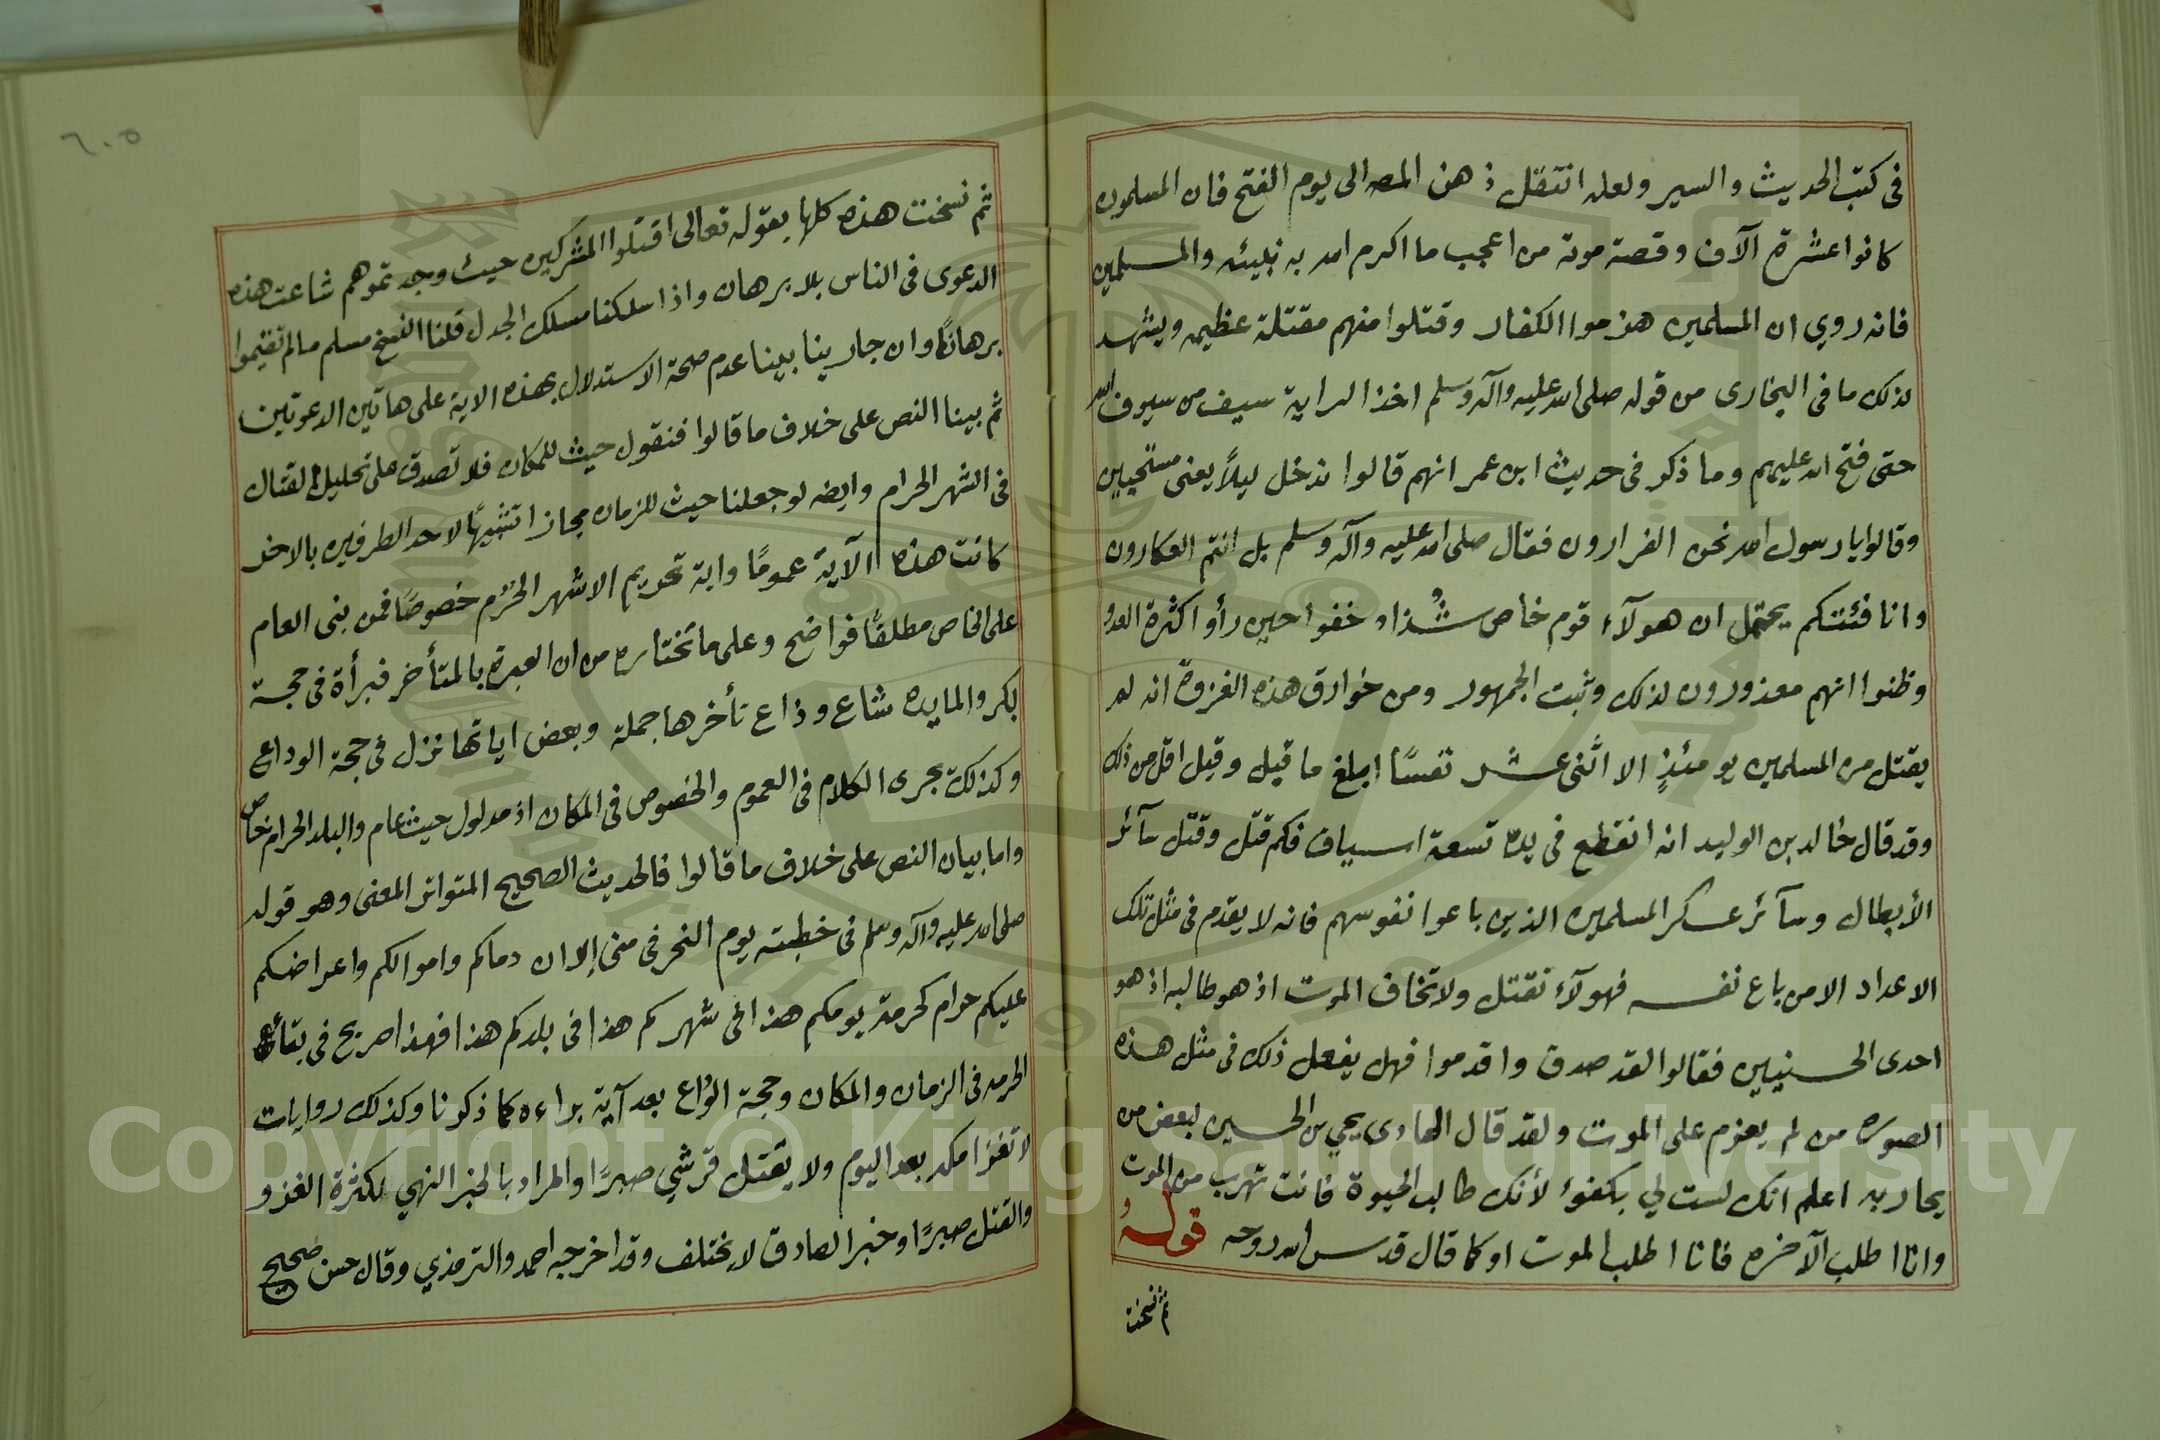 في كتب الحديث والسير ولعله انتقل ذهن المص الى يوم الفتح فان المسلمون
كانوا عشرة آلاف وقصة موتة من اعجب ما اكرم الله به نبيئه والمسلمين
فانه روي ان المسلمين هزموا الكفار وقتلوا منهم مقتلة عظيمه ويشهد
لذلك ما في البخارى من قوله صلى الله عليه وآله وسلم اخذ الراية سيف من سيوف الله
حتى فتح الله عليهم وما ذكر في حديث ابن عمر انهم قالوا ندخل ليلاً يعنى مستحيين
وقالوا يا رسول الله نحن الفرارون فقال صلى الله عليه وآله وسلم بل انتم العكارون
وانا فئتكم يحتمل ان هولآء قوم خاص شُذاذ خفوا حين رأو اكثرة العدو
وظنوا انهم معذورون لذلك وثبت الجمهور ومن خوارق هذه الغزوة انه لم
يقتل من المسلمين يومئذٍ الا اثنى عشر نفسًا ابلغ ما قيل وقيل اقل من ذلك
وقد قال خالد بن الوليد انه انقطع في يده تسعة اسياف فكم قتل وقتل سآئر
الأبطال وسآئر عسكر المسلمين الذين باعوا نفوسهم فانه لا يقدم في مثل تلك
الاعداد الا من باع نفسه فهولآء نقتل ولا تخاف الموت اذ هو طالبه اذ هو
احدى الحسنيين فقالوا لقد صدق واقدموا فهل يفعل ذلك في مثل هذه
الصوره من لم يعزم على الموت ولقد قال الهادى يحيى بن الحسين لبعض من
يحاربه اعلم انك لست لي بكفوء لأنك طالب الحيوة فانت تهرب من الموت
وانا اطلب الآخره فانا اطلب الموت او كما قال قدس الله روحه قوله
ثم نسخت
٦٠٥
ثم نسخت هذه كلها بقوله تعالى اقتلوا المشركين حيث وجدتموهم شاعت هذه
الدعوى في الناس بلا برهان واذا سلكنا مسلك الجدل قلنا النسخ مسلم ما لم تقيموا
برهانًا وان جارينا بينا عدم صحة الاستدلال بهذه الاية على هاتين الدعوتين
ثم بينا النص على خلاف ما قالوا فنقول حيث للمكان فلا تصدق على تحليل القتال
في الشهر الحرام وايضه لو جعلنا حيث للزمان مجازا تشبيهًا لاحد الطرفين بالاخر
كانت هذه الآية عمومًا واية تحريم الاشهر الحُرُم خصوصًا فمن بنى العام
على الخاص مطلقًا فواضح وعلى ما نختاره من ان العبرة بالمتأخر فبرأة في حجة
بكر والمايده شاع وذاع تأخرها جملة وبعض اياتها نزل في حجة الوداع
وكذلك يجرى الكلام في العموم والخصوص في المكان اذ مدلول حيث عام والبلد الحرام خاص
واما بيان النص على خلاف ما قالوا فالحديث الصحيح المتواتر المعنى وهو قوله
صلى الله عليه وآله وسلم في خطبته يوم النحر في منى إلا ان دماكم واموالكم واعراضكم
عليكم حرام كحرمة يومكم هذا في شهركم هذا في بلدكم هذا فهذا صريح في بقآء
الحرمه في الزمان والمكان وحجة الوداع بعد آية براءه كما ذكرنا وكذلك روايات
لا تغزا مكه بعد اليوم ولا يقتل قرشي صبرًا والمراد بالخبر النهي لكثرة الغزو
والقتل صبرًا وخبر الصادق لا يختلف وقد اخرجه احمد والترمذي وقال حسن صحيح
Copyright © King Saud University